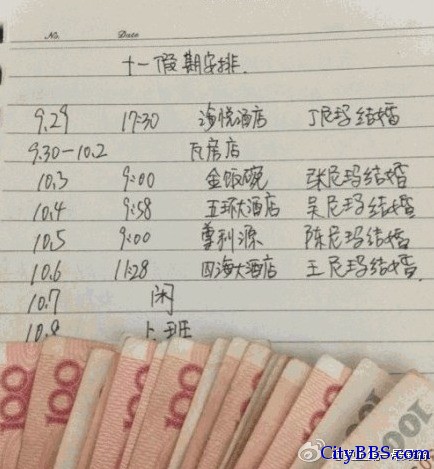 No. Date
十一假期安排.
9.29 17:30 海悦酒店 丁尼玛结婚
9.30-10.2 瓦房店
10.3 9:00 金饭碗 张尼玛结婚
10.4 9:58 五环大酒店 吴尼玛结婚
10.5 9:00 喜利源 陈尼玛结婚
10.6 11:28 四海大酒店 王尼玛结婚.
10.7 闲
10.8 上班
100
100
100
100
CityBBS.com